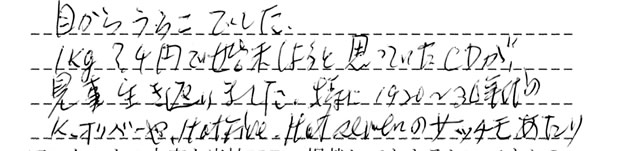 目からうろこでした。
1kg?4円で始末しようと思っていたCDが、
見事生き返りました。特に1920〜30年代の
K.オリバーや、Hot five、Hot sevenのサッチモあたり